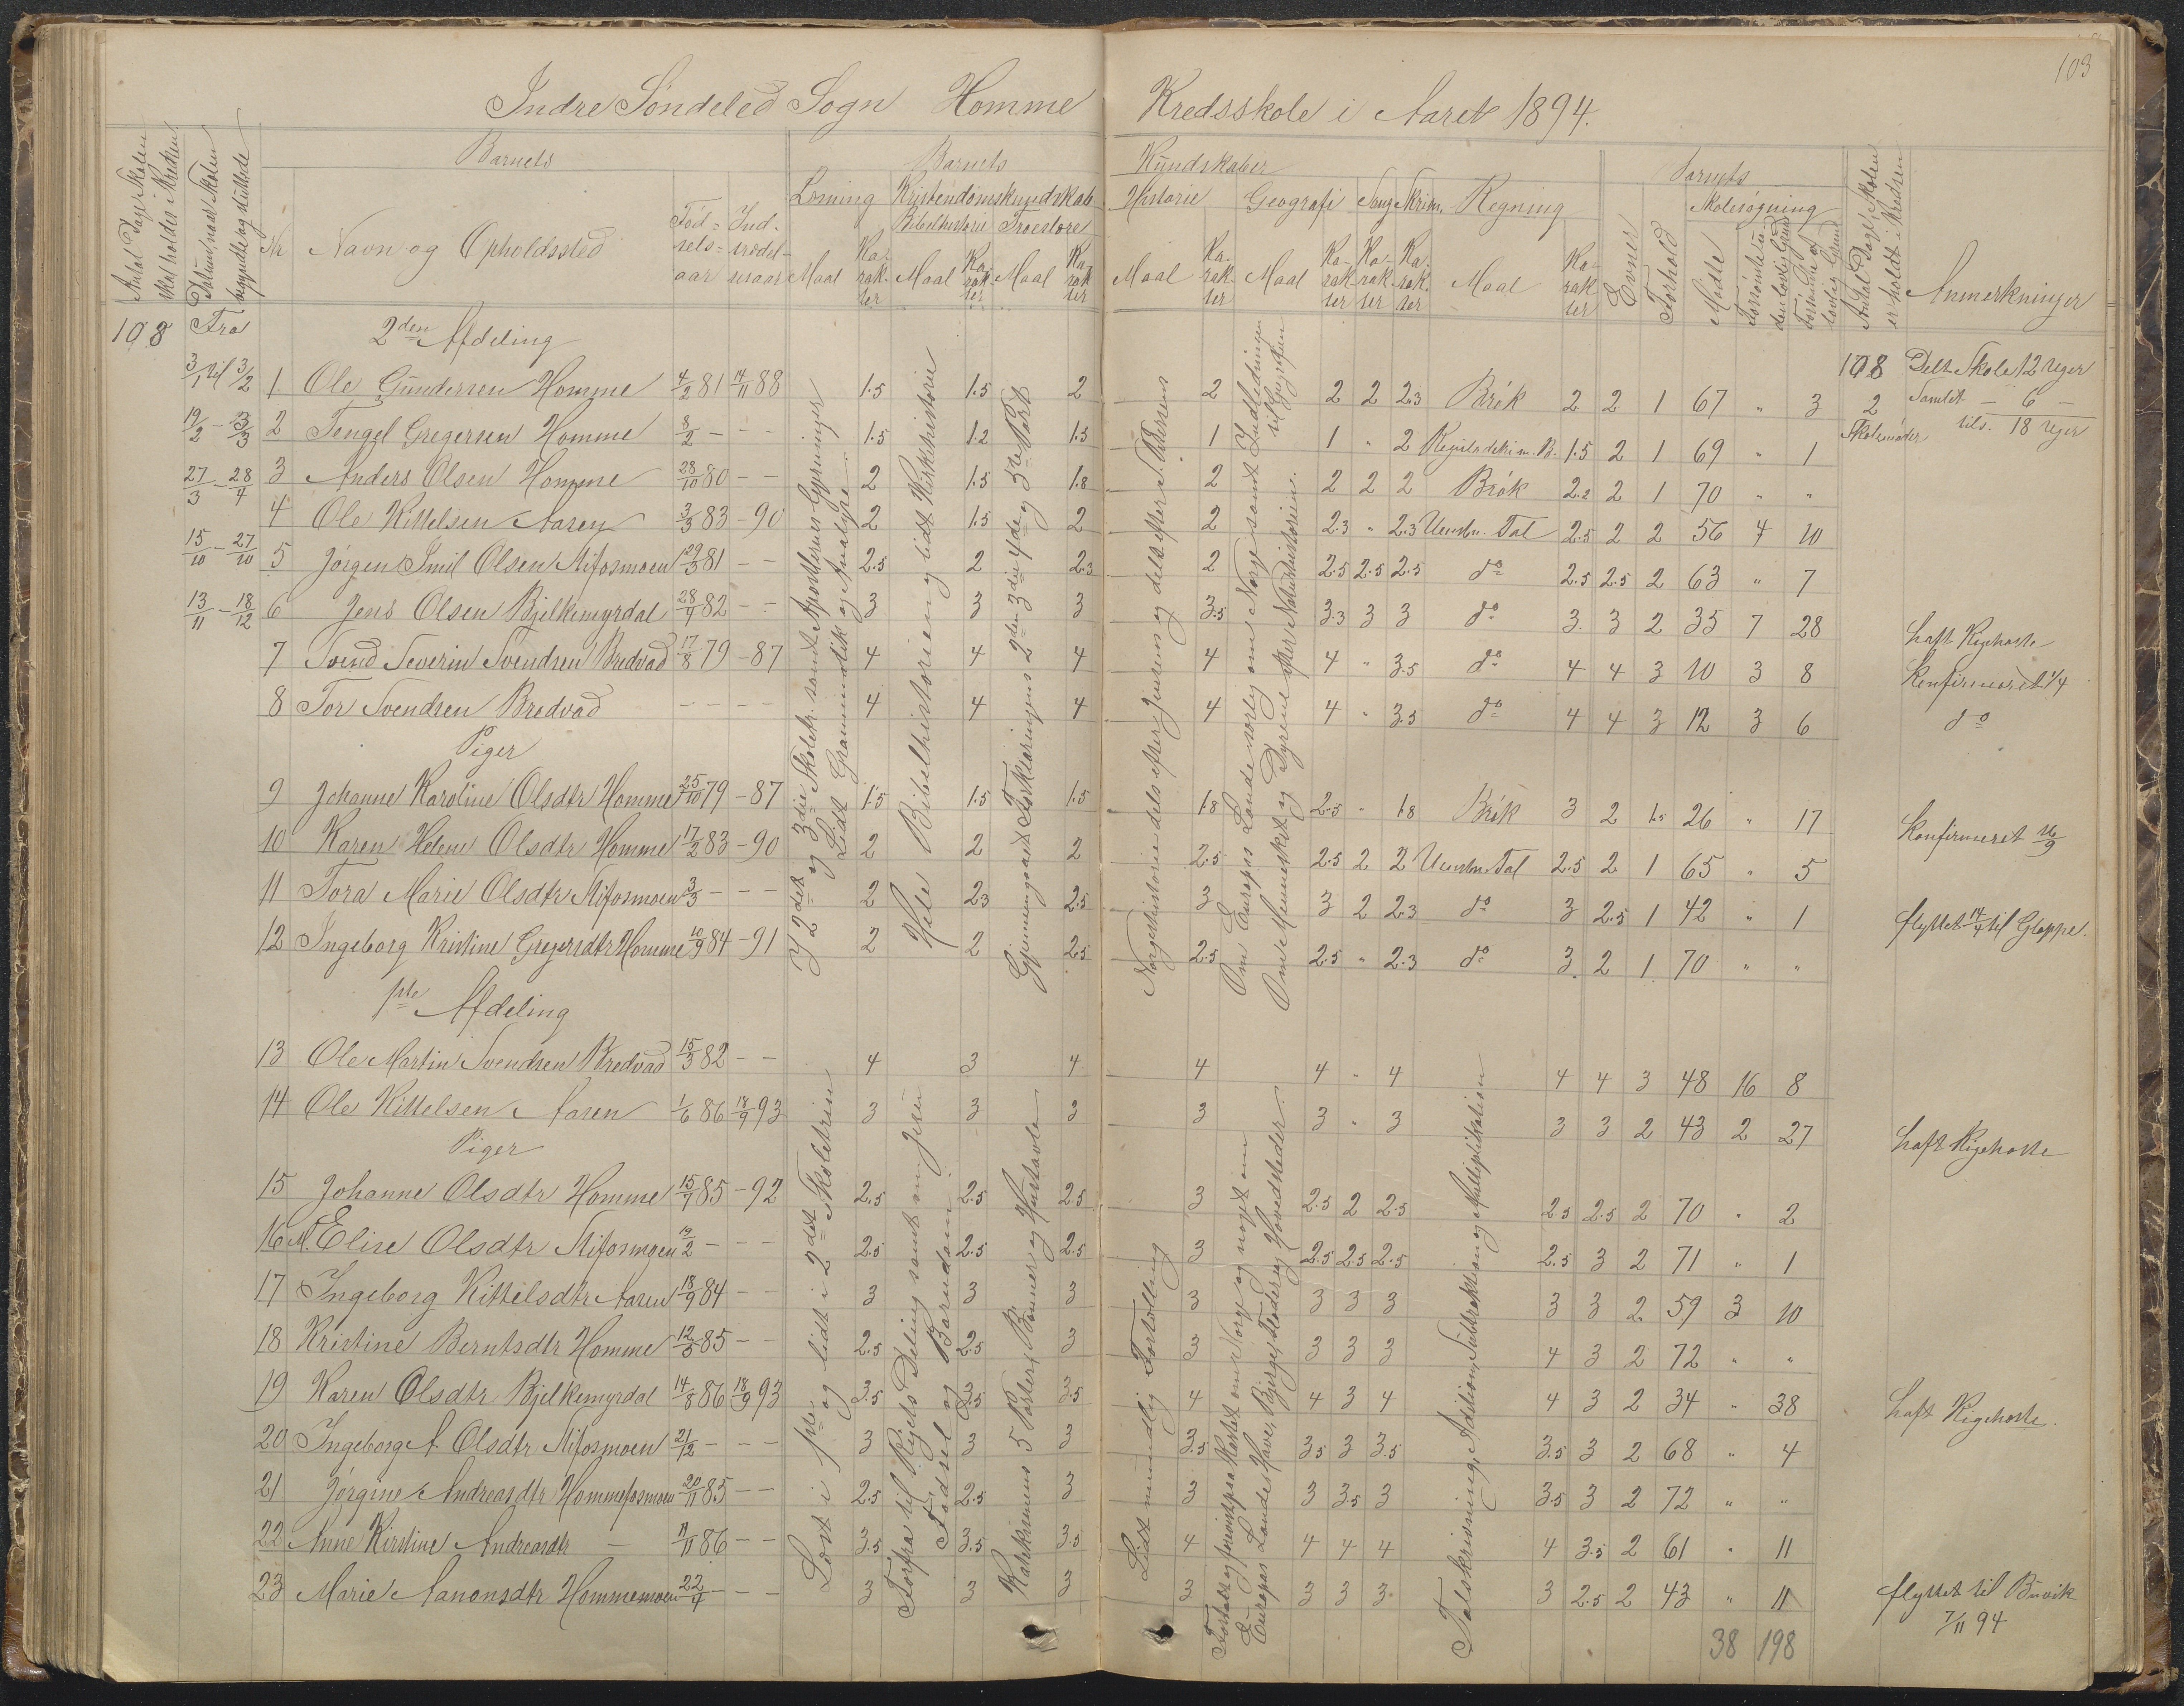 103
Indre Søndeled Sogn Homme Kredsskole i Aaret 1894.
Antal Dage Skolen skal holdes i Kredsen
Datum, naar Skolen begyndte og sluttede
Barnets
Nr
Navn og Opholdssted
Fødselsaar
Indtrædelsesaar
Barnets Kundskaber
Læsning
Maal
Karakter
Kristendomskundskab
Bibelhistorie
Maal
Karakter
Troeslære
Maal
Karakter
Historie
Maal
Karakter
Geografi
Maal
Karakter
Sang
Karakter
Skrivn.
Karakter
Regning
Maal
Karakter
Barnets
Evner
Forhold
Skolesøgning
Mødte
Forsømte uden lovlig Grund
Forsømte af lovlig Grund
Antal Dage Skolen er holdt i Kredsen
Anmerkninger
108 Fra
2den Afdeling
3/1 til 3/2
19/2 - 13/3
27/3 - 28/4
15/10 - 27/10
13/11 - 18/12
1 Ole Gundersen Homme 4/2 81 14/11 88 1.5 1.5 2 2 2 2 2.3 Brøk 2 2 1 67 " 3
2 Tengel Gregersen Homme 8/2 - - - 1.5 1.2 1.5 1 1 " 2 1.5 2 1 69 " 1
3 Anders Olsen Homme 28/10 80 - - 2 1.5 1.8 2 2 2 2 Brøk 2.2 2 1 70 " "
4 Ole Kittelsen Aaren 3/3 83 - 90 2 1.5 2 2 2.3 " 2.3 Uensbn. Tal 2.5 2 2 56 4 10
5 Jørgen Emil Olsen Stifosmoen 29/3 81 - - 2.5 2 2.3 2 2.5 2.5 2.5 do 2.5 2.5 2 63 " 7
6 Jens Olsen Bjelkemyrdal 28/9 82 - - 3 3 3 3.5 3.3 3 3 do 3. 3 2 35 7 28 haft Kighoste
7 Svend Severin Svendsen Bredvad 17/8 79 - 87 4 4 4 4 4 " 3.5 do 4 4 3 10 3 8 Konfirmeret 1/4
8 Tor Svendsen Bredvad - - - - 4 4 4 4 4 " 3.5 do 4 4 3 12 3 6 do
Piger
9 Johanne Karoline Olsdtr Homme 25/10 79 - 87 1.5 1.5 1.5 1.8 2.5 " 1.8 Brøk 3 2 1.5 26 " 17 Konfirmeret 16/9
10 Karen Helene Olsdtr Homme 17/2 83 - 90 2 2 2 2.5 2.5 2 2 Uensbn. Tal 2.5 2 1 65 " 5
11 Tora Marie Olsdtr Stifosmoen 3/3 - - - 2 2.3 2.5 3 3 2 2.3 do 3 2.5 1 42 " 1 flyttet 14/4 til Gloppe.
12 Ingeborg Kristine Gregersdtr Homme 10/9 84 - 91 2 2 2.5 2.5 2.5 " 2.3 do 3. 2 1 70 " "
108 Delt Skole 12 Uger
2 Skolemøder
Samlet - 6 -
tils. 18 Uger
I 2det og 3die Skoletr. samt Apostlernes Gjerninger
Lidt Grammatik og Analyse.
Hele Bibelhistorien og lidt Kirkehistorie
Gjennemgaaet Forklaringens 2den 3die 4de og 5te Part
Norgeshistorie dels efter Jensen og dels efter S. Petersens
Om Europas Lande, særlig om Norge samt Indledningen til Geografien
Om Mennesket og Dyrene efter Naturhistorien.
1ste Afdeling
13 Ole Martin Svendsen Bredvad 15/3 82 - - 4 3 4 4 4 " 4 4 4 3 48 16 8
14 Ole Kittelsen Aaren 1/6 86 18/9 93 3 3 3 3 3 " 3 3 3 2 43 2 27 haft Kighoste
Piger
15 Johanne Olsdtr Homme 15/7 85 - 92 2.5 2.5 2.5 3 2.5 2 2.5 2.5 2.5 2 70 " 2
16 M. Elise Olsdtr Stifosmoen 12/2 - - - 2.5 2.5 2.5 3 2.5 2.5 2.5 2.5 3 2 71 " 1
17 Ingeborg Kittelsdtr Aaren 18/9 84 - - 3 3 3 3 3 3 3 3 3 2 59 3 10
18 Kristine Berntsdtr Homme 12/5 85 - - 2.5 2.5 3 3 3 3 3 4 3 2 72 " "
19 Karen Olsdtr Bjelkemyrdal 14/8 86 18/9 93 3.5 3.5 3.5 4 4 3 4 4 3 2 34 " 38 haft Kighoste.
20 Ingeborg A. Olsdtr Stifosmoen 21/12 - - - 3 3 3 3.5 3.5 3 3.5 3.5 3 2 68 " 4
21 Jørgine Andreasdtr Hommefosmoen 20/11 85 - - 2.5 2.5 3 3 3 3.5 3 3.5 3 2 72 " "
22 Anne Kirstine Andreasdtr - 11/11 86 - - 3.5 3.5 3.5 4 4 4 4 4 3.5 2 61 " 11
23 Marie Aanonsdtr Hommemoen 22/4 - - - 3 3 3 3 3 3 3 3 2.5 2 43 " 11 flyttet til Buvik 7/11 94
Læst i 1ste og lidt i 2det Skoletrin
Forfra til Rigets Deling samt om Jesu Fødsel og Barndom.
Katekismens 5 Parter, Bønner og Hustavle
Lidt mundlig Fortælling
Fortalt og forevist paa Kartet om Norge og noget om
Europas Lande, Have, Bjerge, Floder og Hovedstæder.
Talskrivning, Adition, Subtraktion og Multiplikation
38 198